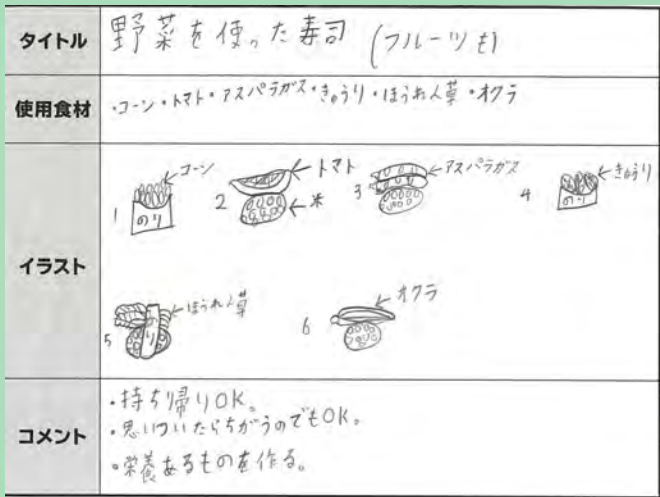 タイトル
野菜を使った寿司 (フルーツも)
使用食材
・コーン・トマト・アスパラガス・きゅうり・ほうれん草・オクラ
イラスト
1 のり ←コーン
2 ←トマト
←米
3 ←アスパラガス
4 のり ←きゅうり
5 のり ←ほうれん草
6 ←オクラ
コメント
・持ち帰りOK。
・思いついたらちがうのでもOK。
・栄養あるものを作る。